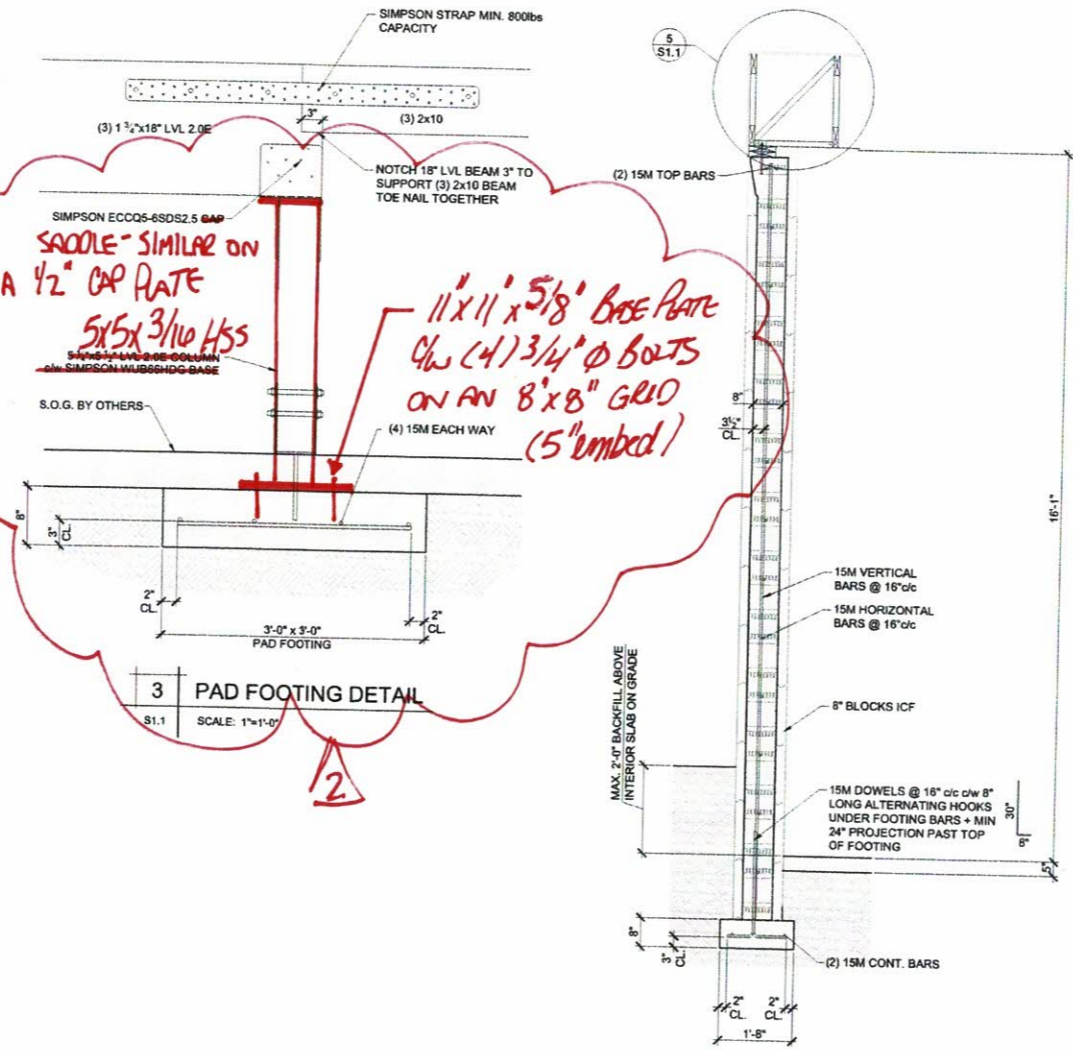 SIMPSON STRAP MIN. 800lbs
CAPACITY
3"
(3) 1 3/4"x18" LVL 2.0E
(3) 2x10
NOTCH 18" LVL BEAM 3" TO
SUPPORT (3) 2x10 BEAM
TOE NAIL TOGETHER
SIMPSON ECCQ5-6SDS2.5 CAP
SADDLE - SIMILAR ON
A 1/2" CAP PLATE
5x5x 3/16 HSS
5 1/2"x5 1/2" LVL 2.0E COLUMN
c/w SIMPSON WUB66HDG BASE
11"x11"x 5/8" BASE PLATE
C/W (4) 3/4" Ø BOLTS
ON AN 8"x8" GRID
(5" embed)
S.O.G. BY OTHERS
(4) 15M EACH WAY
8"
3"
CL.
2"
CL.
2"
CL.
3'-0" x 3'-0"
PAD FOOTING
3
PAD FOOTING DETAIL
S1.1
SCALE: 1"=1'-0"
2
5
S1.1
(2) 15M TOP BARS
8"
3 1/2"
CL.
16'-1"
15M VERTICAL
BARS @ 16"c/c
15M HORIZONTAL
BARS @ 16"c/c
8" BLOCKS ICF
MAX. 2'-0" BACKFILL ABOVE
INTERIOR SLAB ON GRADE
15M DOWELS @ 16" c/c c/w 8"
LONG ALTERNATING HOOKS
UNDER FOOTING BARS + MIN
24" PROJECTION PAST TOP
OF FOOTING
30"
8"
5"
8"
3"
CL.
(2) 15M CONT. BARS
2"
CL.
2"
CL.
1'-8"